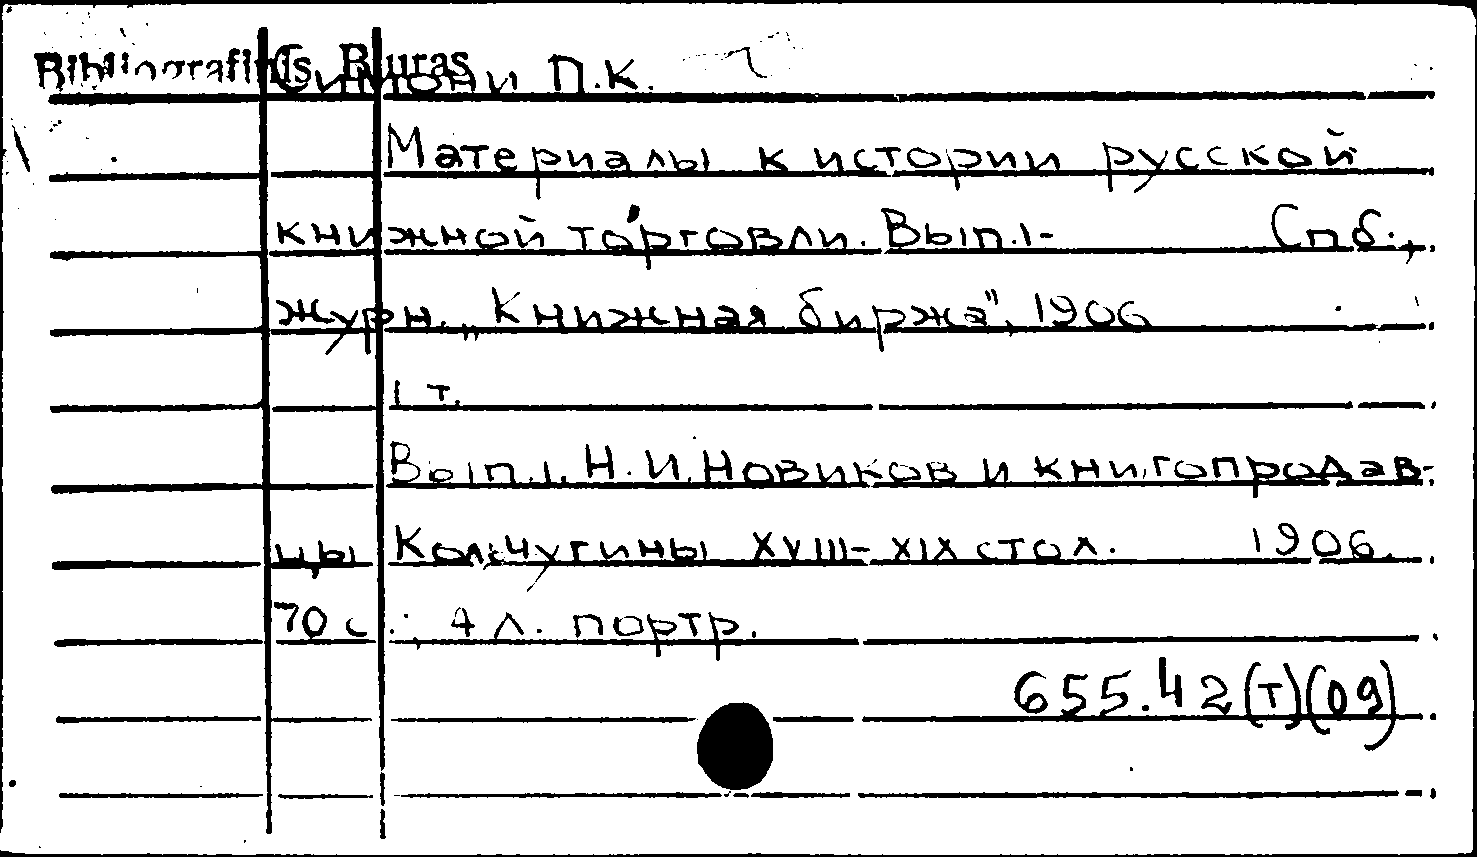 Bibliografinis Biuras
Симони П.К.
Материалы к истории русской
книжной торговли. Вып.1- Спб.,
журн. „Книжная биржа", 1906
1 т.
Вып.1. Н.И.Новиков и книгопродав-
цы Кольчугины XVIII-XIX стол. 1906.
70 с.; 4 л. портр.
655.42(т)(09)